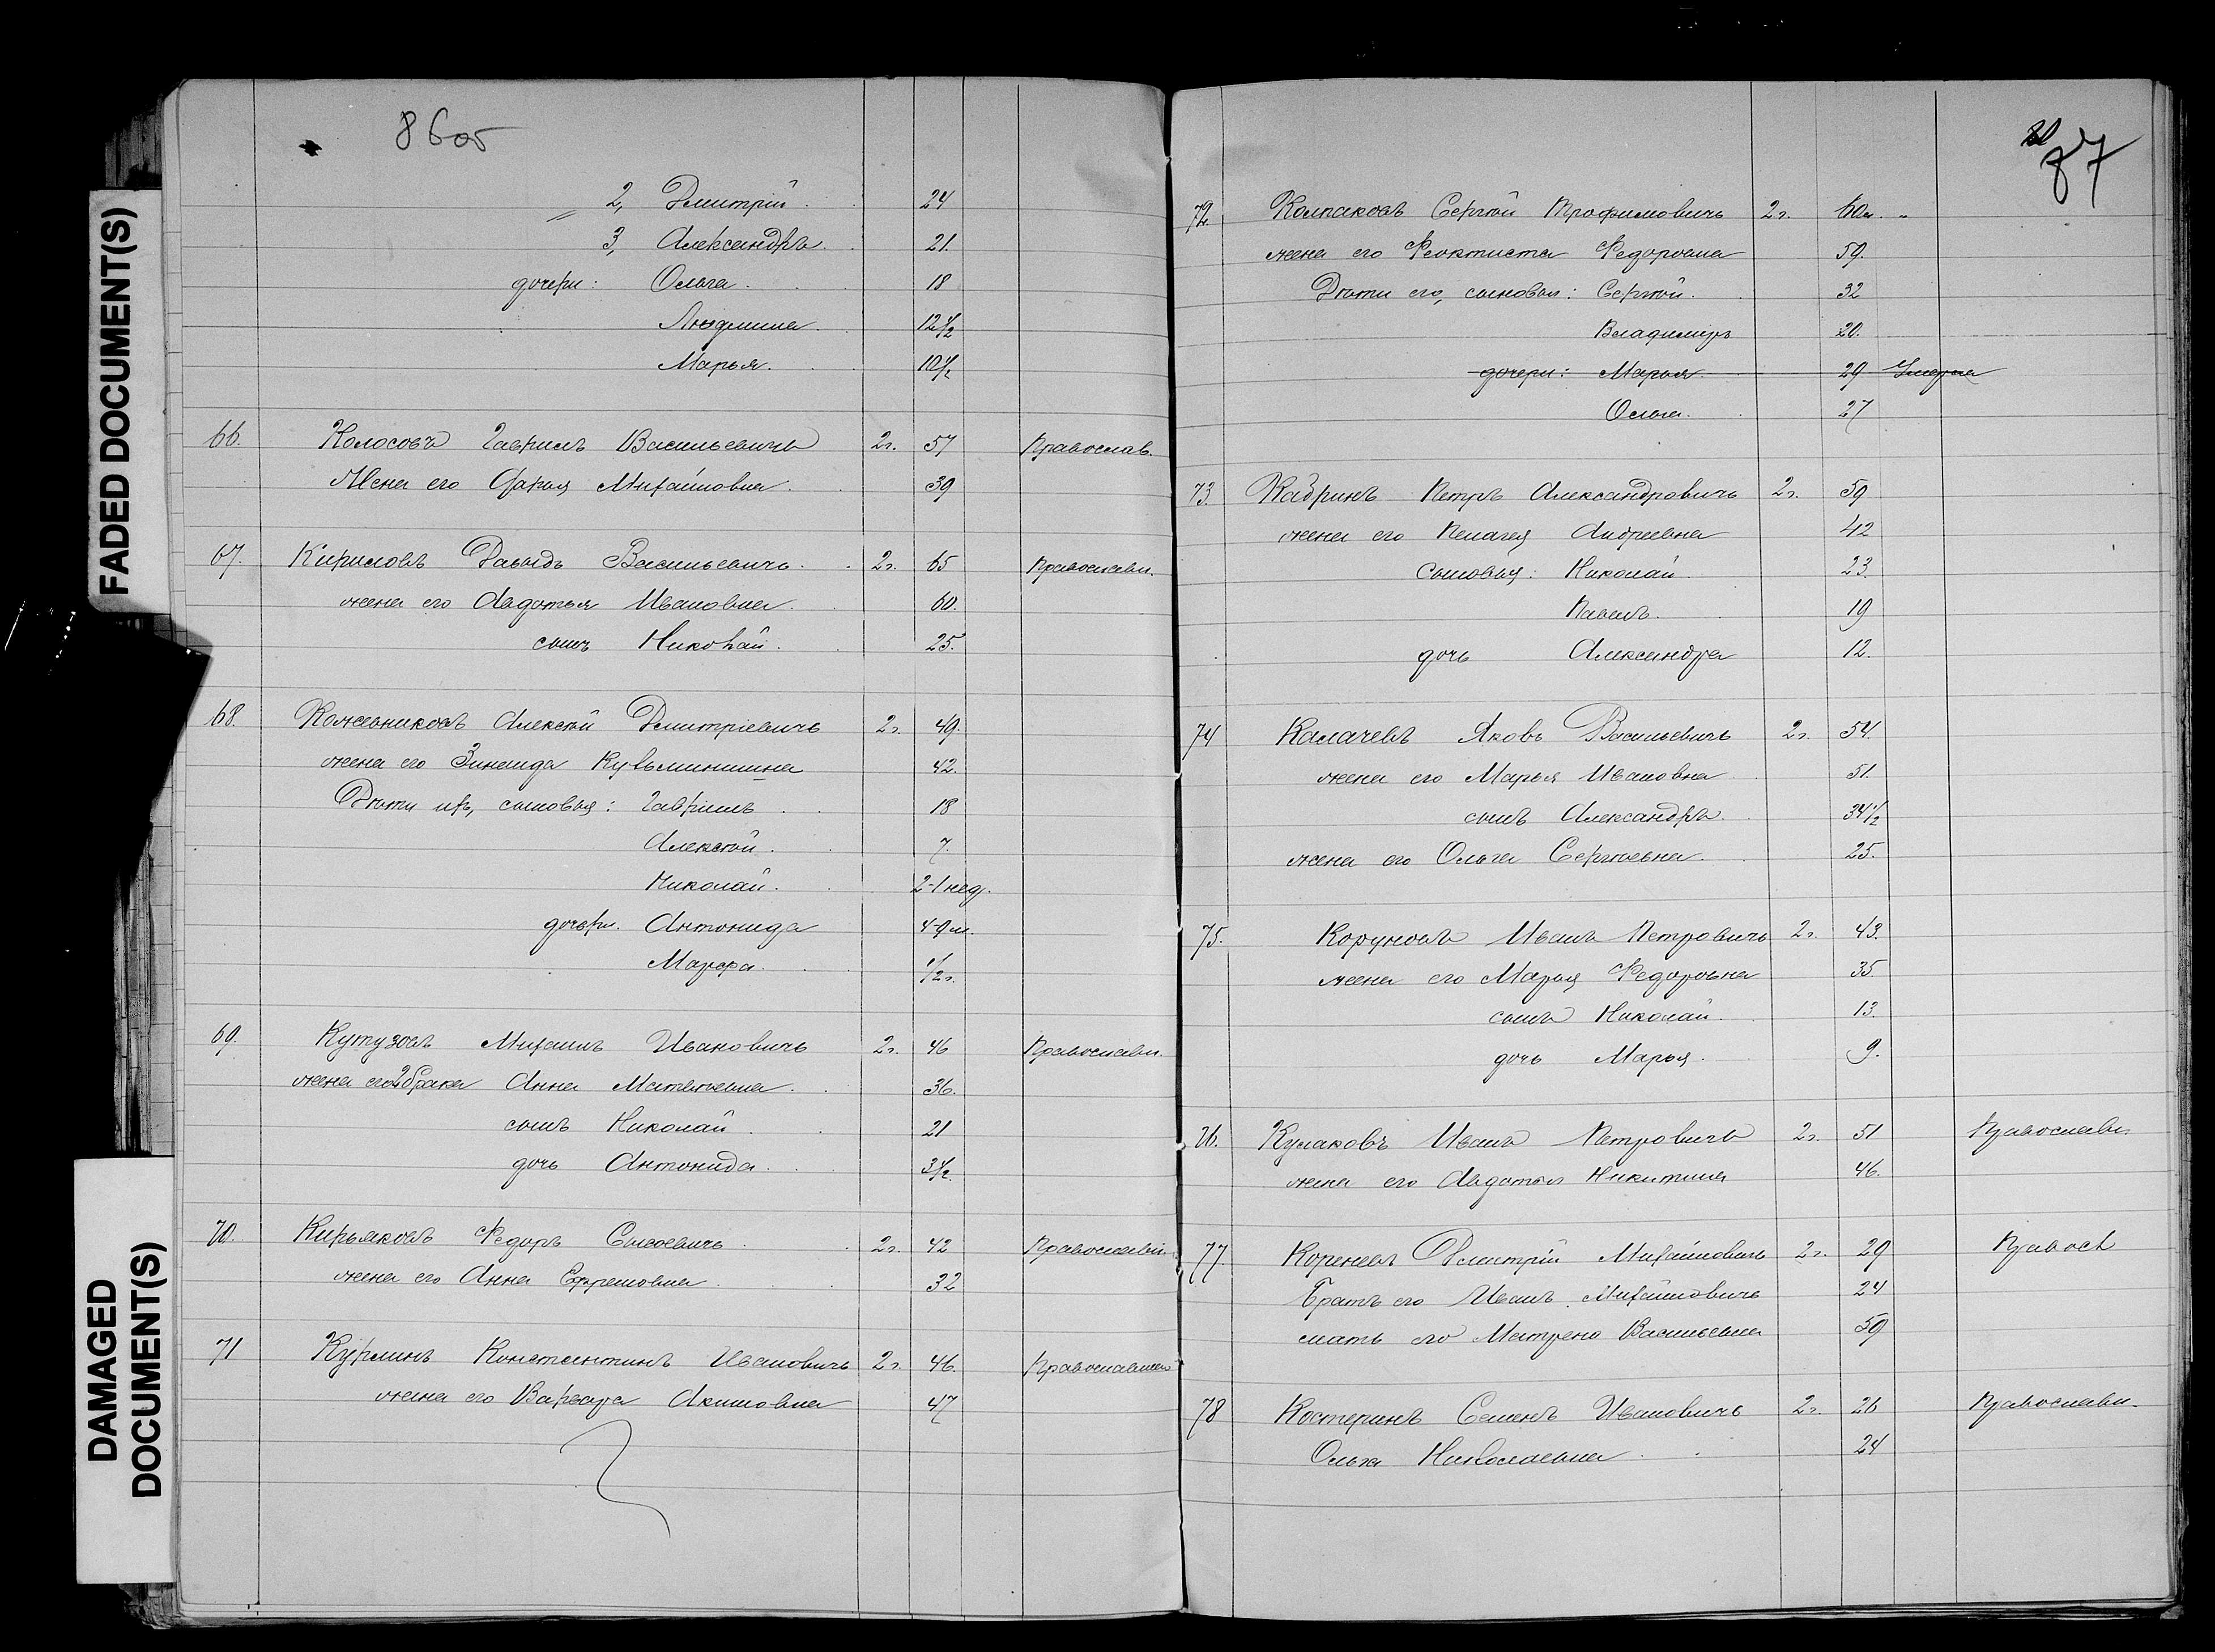 FADED DOCUMENT(S)
DAMAGED DOCUMENT(S)
86об
2, Дмитрій. 24
3, Александръ. 21.
дочери: Ольга. 18
Людмила. 12 1/2
Марья. 10 1/2
66. Колосовъ Гавриилъ Васильевичъ 2 г. 57 Православ.
Жена его Дарья Михайловна. 39
67. Кириловъ Давыдъ Васильевичъ. 2 г. 65 Православн.
жена его Авдотья Ивановна. 60.
сынъ Николай. 25.
68. Кожевниковъ Алексѣй Дмитріевичъ 2 г. 49.
жена его Зинаида Кузьминишна 42.
Дѣти ихъ, сыновья: Гавриилъ 18
Алексѣй. 7.
Николай. 2-1 нед.
дочери. Антонида 4-9 м.
Марфа. 1/2 г.
69. Кутузовъ Михаилъ Ивановичъ 2 г. 46 Православн.
жена его 2 брака Анна Матвѣевна. 36.
сынъ Николай 21
дочь Антонида. 3 1/2.
70. Кирьяковъ Федоръ Сысоевичъ 2 г. 42 Православн.
жена его Анна Ефремовна 32
71 Курминъ Константинъ Ивановичъ 2 г. 46. Православнаго
жена его Варвара Акимовна 47
87
72. Колпаковъ Сергѣй Трофимовичъ 2 г. 60 л. "
жена его Феоктиста Федоровна 59.
Дѣти его, сыновья: Сергѣй. 32
Владиміръ 20.
дочери: Марья. 29 Умерла
Ольга. 27
73. Кадринъ Петръ Александровичъ 2 г. 59
жена его Пелагея Андреевна 42
Сыновья: Николай. 23.
Павелъ. 19
дочь Александра 12.
74 Калачевъ Яковъ Васильевичъ 2 г. 54.
жена его Марья Ивановна 51.
сынъ Александръ. 34 1/2
жена его Ольга Сергѣевна. 25.
75. Коруновъ Иванъ Петровичъ 2 г. 43.
жена его Марья Федоровна 35.
сынъ Николай. 13.
дочь Марья. 9.
76. Кулаковъ Иванъ Петровичъ 2 г. 51 Православн.
жена его Авдотья Никитина 46.
77. Кореневъ Дмитрій Михайловичъ 2 г. 29 Правосл
Братъ его Иванъ Михайловичъ 24
мать его Матрена Васильевна 59
78 Костеринъ Семенъ Ивановичъ 2 г. 26 Православн.
Ольга Николаевна 24